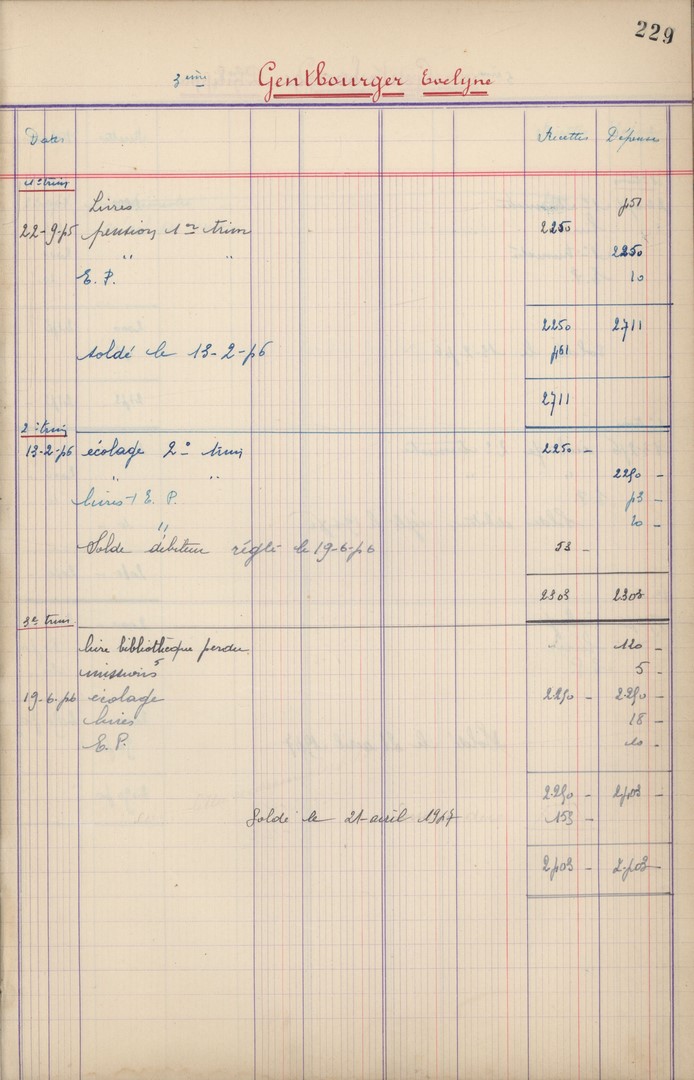 229
3ème Gentbourger Evelyne
Dates Recettes Dépenses
1er trim
Livres 451
22-9-45 pension 1er trim 2250
" " 2250
E. P. 10
2250 2711
soldé le 13-2-46 461
2711
2e trim
13-2-46 écolage 2e trim 2250 -
" " 2250 -
livres + E. P. 43 -
" 10 -
Solde débiteur réglé le 19-6-46 53 -
2303 2303
3e trim
livre bibliothèque perdu 120 -
missions 5 5 -
19-6-46 écolage 2250 - 2250 -
livres 18 -
E. P. 10 -
2250 - 2403 -
Soldé le 21 avril 1947 153 -
2403 - 2403 -